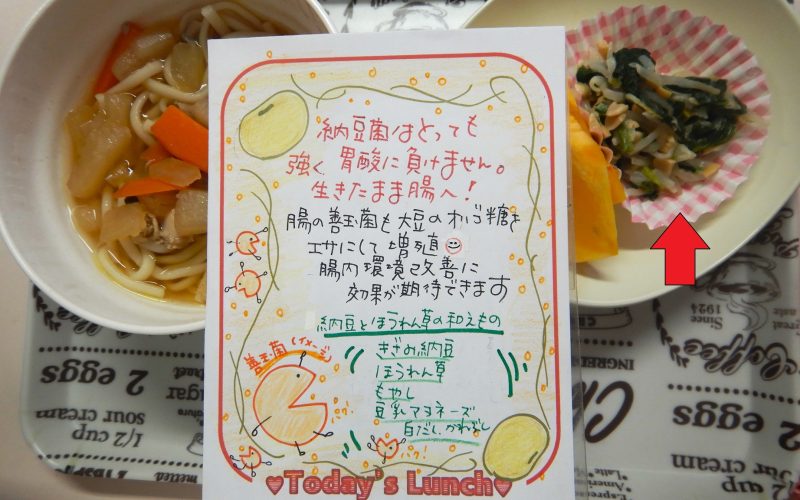 納豆菌はとっても
強く胃酸に負けません。
生きたまま腸へ!
腸の善玉菌も大豆のオリゴ糖を
エサにして増殖
腸内環境改善に
効果が期待できます
納豆とほうれん草の和えもの
善玉菌(イメージ)
きざみ納豆
ほうれん草
もやし
豆乳マヨネーズ
白だし、かわぶし
♥Today's Lunch♥
2 eggs
1/2 cup
sour cream
sugar
Coffee
Since
1924
INGRE
2 eggs
1/2 cup
sour cream